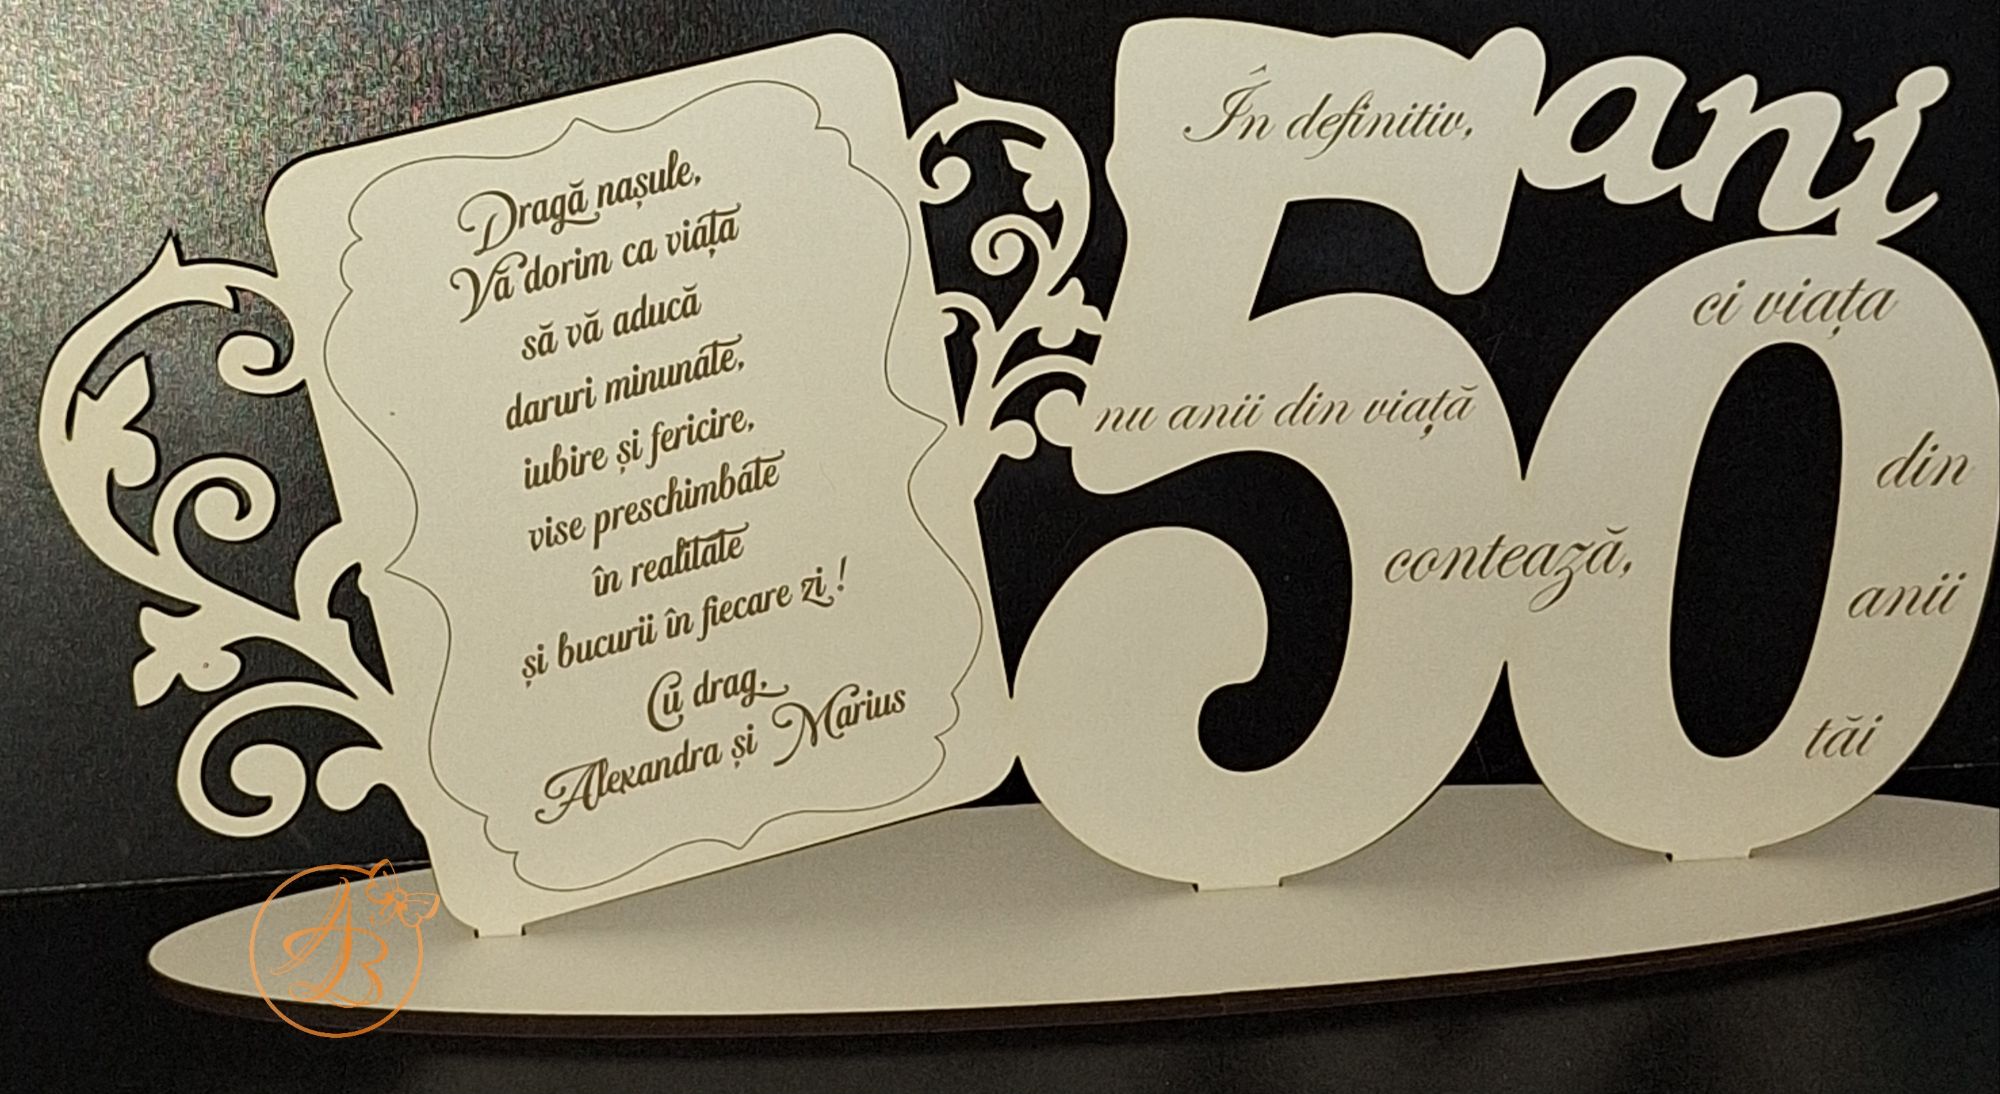 Dragă nașule,
Vă dorim ca viața
să vă aducă
daruri minunate,
iubire și fericire,
vise preschimbate
în realitate
și bucurii în fiecare zi !
Cu drag,
Alexandra și Marius
50 ani
În definitiv,
nu anii din viață
contează,
ci viața
din
anii
tăi
AB